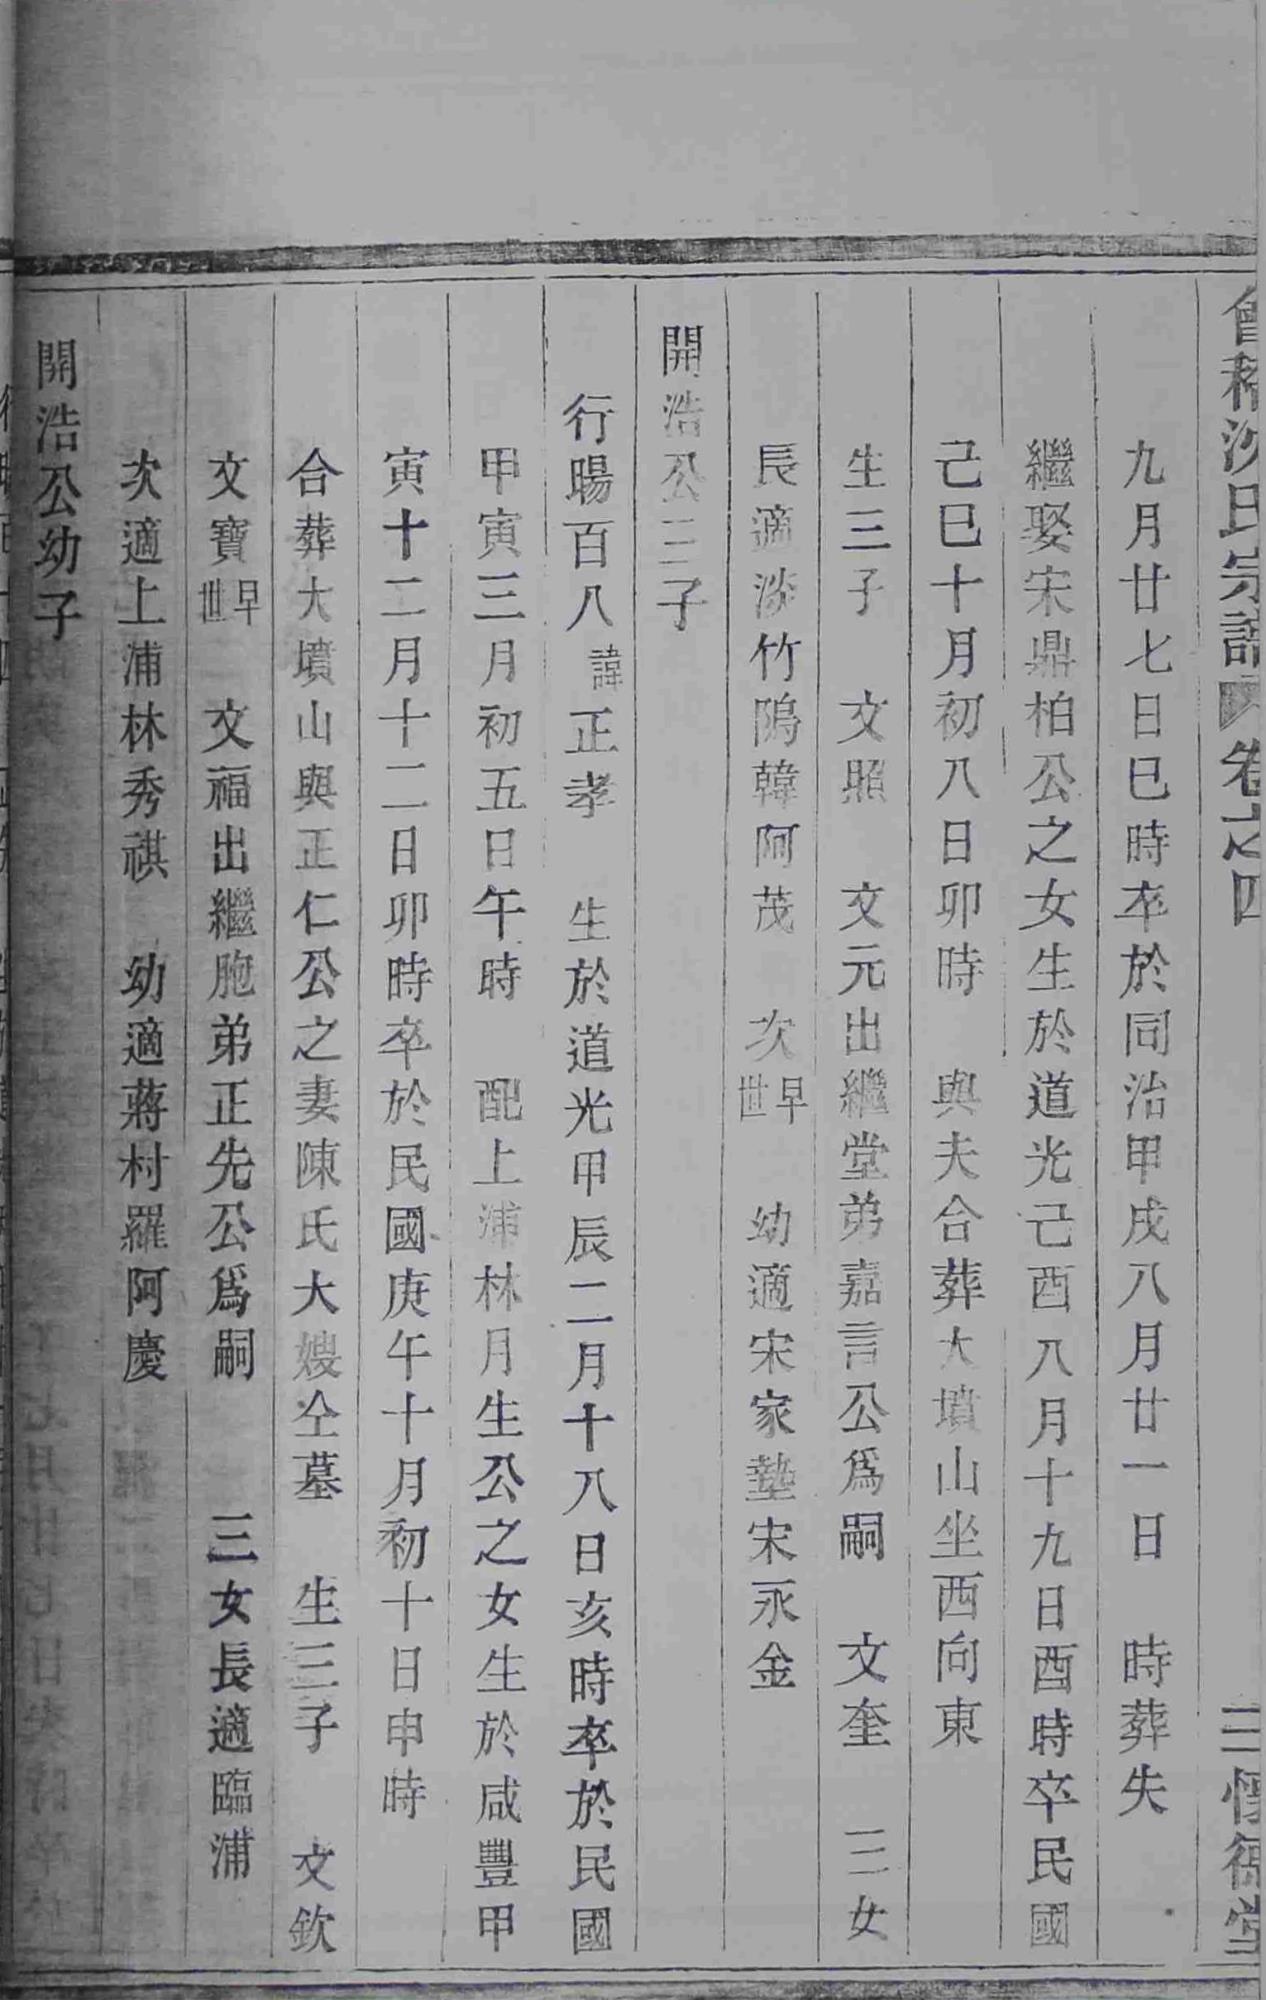 會稽沈氏宗譜 卷之四 三慎德堂
九月廿七日巳時卒於同治甲戌八月廿一日 時葬失
繼娶宋鼎柏公之女生於道光己酉八月十九日酉時卒民國
己巳十月初八日卯時 與夫合葬大墳山坐西向東
生三子 文照 文元出繼堂弟嘉言公爲嗣 文奎 三女
長適淡竹隖韓阿茂 次早世 幼適宋家墊宋永金
開浩公三子
行暘百八諱正孝 生於道光甲辰二月十八日亥時卒於民國
甲寅三月初五日午時 配上浦林月生公之女生於咸豐甲
寅十二月十二日卯時卒於民國庚午十月初十日申時
合葬大墳山與正仁公之妻陳氏大嫂仝墓 生三子 文欽
文寶早世 文福出繼胞弟正先公爲嗣 三女長適臨浦
次適上浦林秀祺 幼適蔣村羅阿慶
開浩公幼子